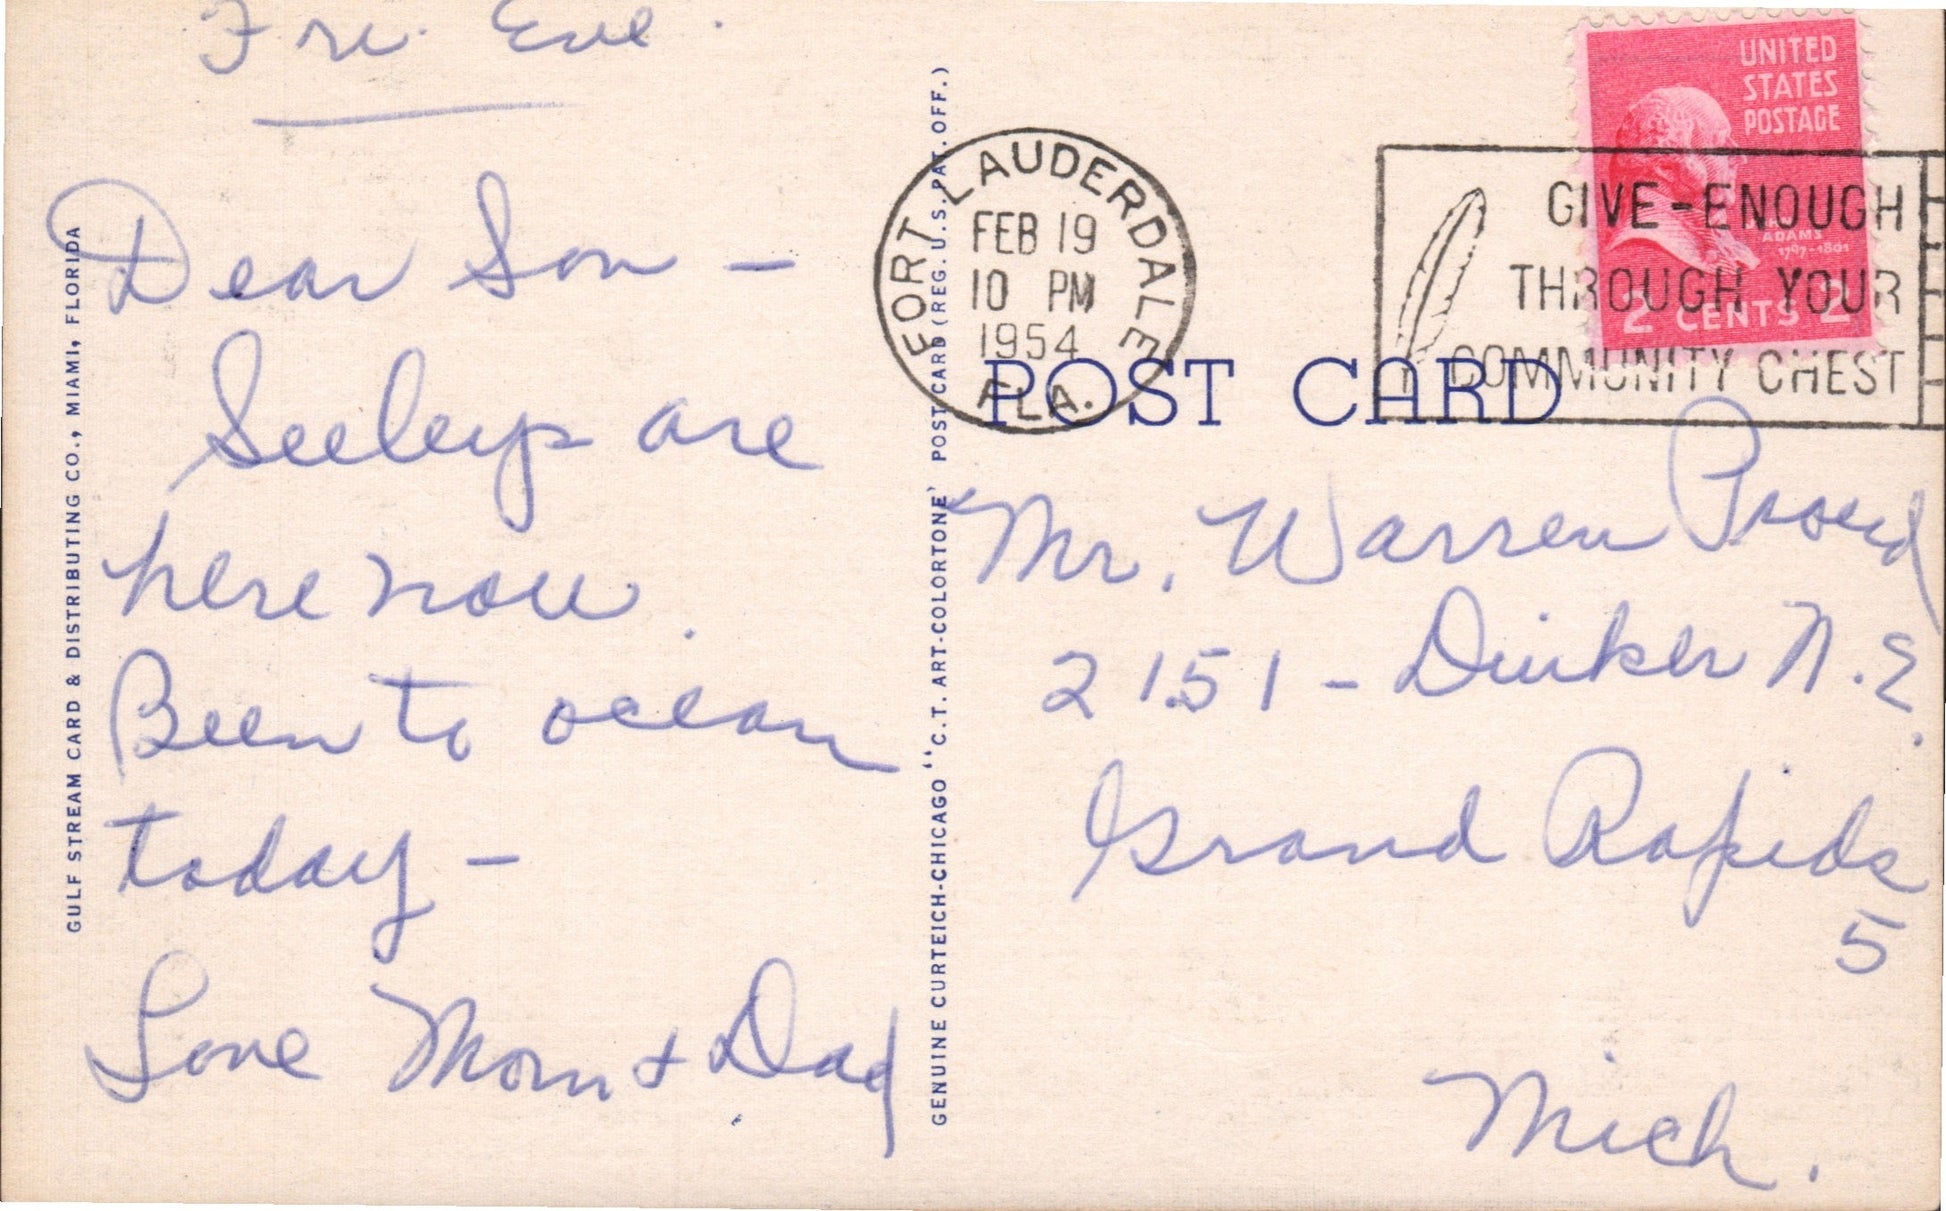 Fri. Eve.
Dear Son -
Seeleys are
here now.
Been to ocean
today -
Love Mom + Dad
GULF STREAM CARD & DISTRIBUTING CO., MIAMI, FLORIDA
GENUINE CURTEICH-CHICAGO "C.T. ART-COLORTONE" POST CARD (REG. U.S. PAT. OFF.)
FORT LAUDERDALE
FEB 19
10 PM
1954
FLA.
UNITED
STATES
POSTAGE
ADAMS
1797-1801
2 CENTS 2
GIVE-ENOUGH
THROUGH YOUR
COMMUNITY CHEST
POST CARD
Mr. Warren Proud
2151 - N.E.
Grand Rapids
5
Mich.